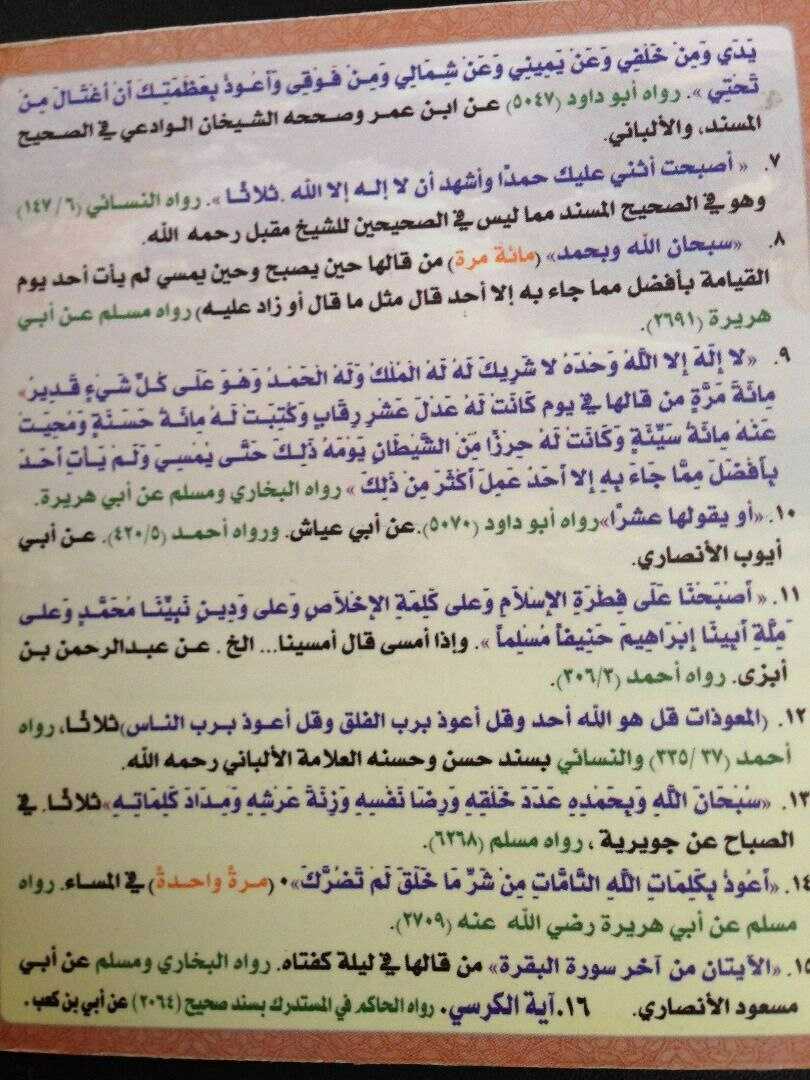 يَدَي وَمِنْ خَلْفِي وَعَنْ يَمِينِي وَعَنْ شِمَالِي وَمِنْ فَوْقِي وَأَعُوذُ بِعَظَمَتِكَ أَنْ أُغْتَالَ مِنْ
تَحْتِي ». رواه أبو داود (٥٠٤٧) عن ابن عمر وصححه الشيخان الوادعي في الصحيح
المسند، والألباني.
٧. « أصبحت أثني عليك حمدًا وأشهد أن لا إله إلا الله .ثلاثًا ». رواه النسائي (٦/ ١٤٧)
وهو في الصحيح المسند مما ليس في الصحيحين للشيخ مقبل رحمه الله.
٨. «سبحان الله وبحمد» (مائة مرة) من قالها حين يصبح وحين يمسي لم يأت أحد يوم
القيامة بأفضل مما جاء به إلا أحد قال مثل ما قال أو زاد عليه) رواه مسلم عن أبي
هريرة (٢٦٩١).
٩. «لا إلَهَ إلا اللَّهُ وَحْدَهُ لا شَرِيكَ لَهُ لَهُ الْمُلْكُ وَلَهُ الْحَمْدُ وَهُوَ عَلَى كُلِّ شَيْءٍ قَدِيرٌ»
مِائَةَ مَرَّةٍ من قالها في يوم كَانَتْ لَهُ عَدْلَ عَشْرِ رِقَابٍ وَكُتِبَتْ لَهُ مِائَةُ حَسَنَةٍ وَمُحِيَتْ
عَنْهُ مِائَةُ سَيِّئَةٍ وَكَانَتْ لَهُ حِرْزًا مِّنَ الشَّيْطَانِ يَوْمَهُ ذَلِكَ حَتَّى يُمْسِيَ وَلَمْ يَأْتِ أَحَدٌ
بِأَفْضَلَ مِمَّا جَاءَ بِهِ إلا أَحَدٌ عَمِلَ أَكْثَرَ مِن ذَلِكَ » رواه البخاري ومسلم عن أبي هريرة.
١٠. «أو يقولها عشرًا» رواه أبو داود (٥٠٧٠). عن أبي عياش. ورواه أحمد (٤٢٠/٥). عن أبي
أيوب الأنصاري.
١١. « أَصْبَحْنَا عَلَى فِطْرَةِ الإِسْلَامِ وَعلى كَلِمَةِ الإِخْلَاصِ وَعلى وَدِينِ نَبِيِّنَا مُحَمَّدٍ وَعلى
مِلَّةِ أَبِينَا إِبْرَاهِيمَ حَنِيفاً مُسْلِماً ». وإذا أمسى قال أمسينا... الخ . عن عبدالرحمن بن
أبزى. رواه أحمد (٣٠٦/٣).
١٢. (المعوذات قل هو الله أحد وقل أعوذ برب الفلق وقل أعوذ برب الناس) ثلاثًا، رواه
أحمد (٣٧ /٣٣٥) والنسائي بسند حسن وحسنه العلامة الألباني رحمه الله.
١٣. «سُبْحَانَ اللَّهِ وَبِحَمْدِهِ عَدَدَ خَلْقِهِ وَرِضَا نَفْسِهِ وَزِنَةَ عَرْشِهِ وَمِدَادَ كَلِمَاتِهِ» ثلاثًا. في
الصباح عن جويرية ، رواه مسلم (٦٢٦٨).
١٤. «أَعُوذُ بِكَلِمَاتِ اللَّهِ التَّامَّاتِ مِنْ شَرِّ مَا خَلَقَ لَمْ تَضُرَّكَ». (مرةً واحدةً) في المساء. رواه
مسلم عن أبي هريرة رضي الله عنه (٢٧٠٩).
١٥. «الآيتان من آخر سورة البقرة» من قالها في ليلة كفتاه. رواه البخاري ومسلم عن أبي
مسعود الأنصاري. ١٦. آية الكرسي. رواه الحاكم في المستدرك بسند صحيح (٢٠٦٤) عن أبي بن كعب.